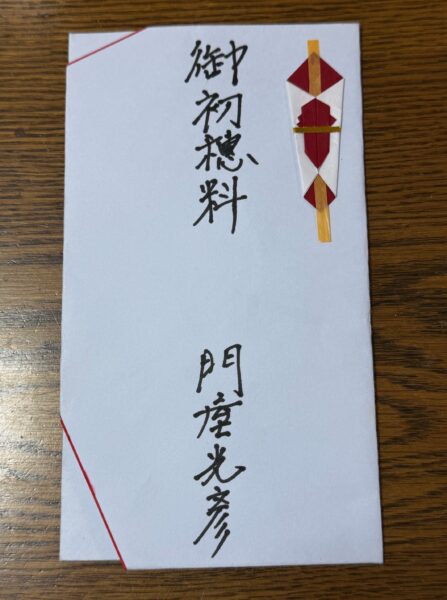 御初穂料
門座光彦